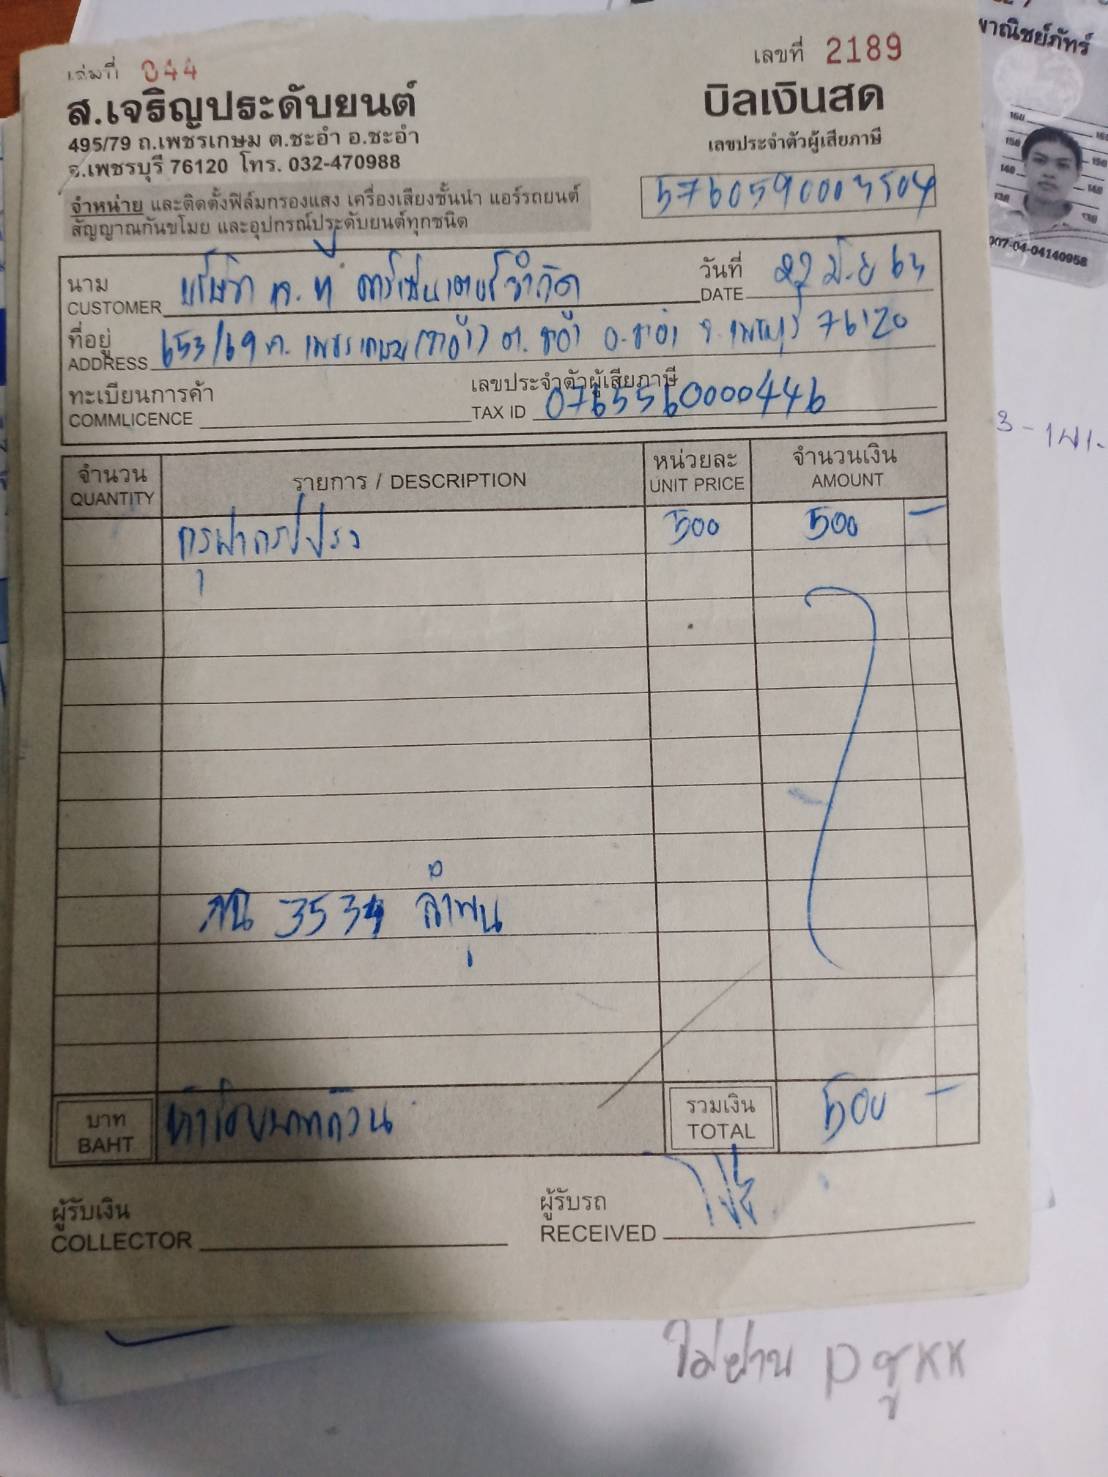 เล่มที่ 044
เลขที่ 2189
ส.เจริญประดับยนต์
บิลเงินสด
495/79 ถ.เพชรเกษม ต.ชะอำ อ.ชะอำ
จ.เพชรบุรี 76120 โทร. 032-470988
เลขประจำตัวผู้เสียภาษี
5760590003504
จำหน่าย และติดตั้งฟิล์มกรองแสง เครื่องเสียงชั้นนำ แอร์รถยนต์
สัญญาณกันขโมย และอุปกรณ์ประดับยนต์ทุกชนิด
นาม บริษัท
วันที่ 22 มิ.ย 63
CUSTOMER
DATE
ที่อยู่ 653/69 ถ. เพชรเกษม ต. ชะอำ อ.ชะอำ จ.เพชรบุรี 76120
ADDRESS
ทะเบียนการค้า
เลขประจำตัวผู้เสียภาษี
COMMLICENCE
TAX ID 0765560000446
จำนวน
QUANTITY
รายการ / DESCRIPTION
หน่วยละ
UNIT PRICE
จำนวนเงิน
AMOUNT
500 500 -
3534 ลำพูน
บาท
BAHT
ห้าร้อยบาทถ้วน
รวมเงิน
TOTAL
500 -
ผู้รับเงิน
COLLECTOR
ผู้รับรถ
RECEIVED
ไม่ผ่าน
าณิชย์ภัทร์
007-04-04140958